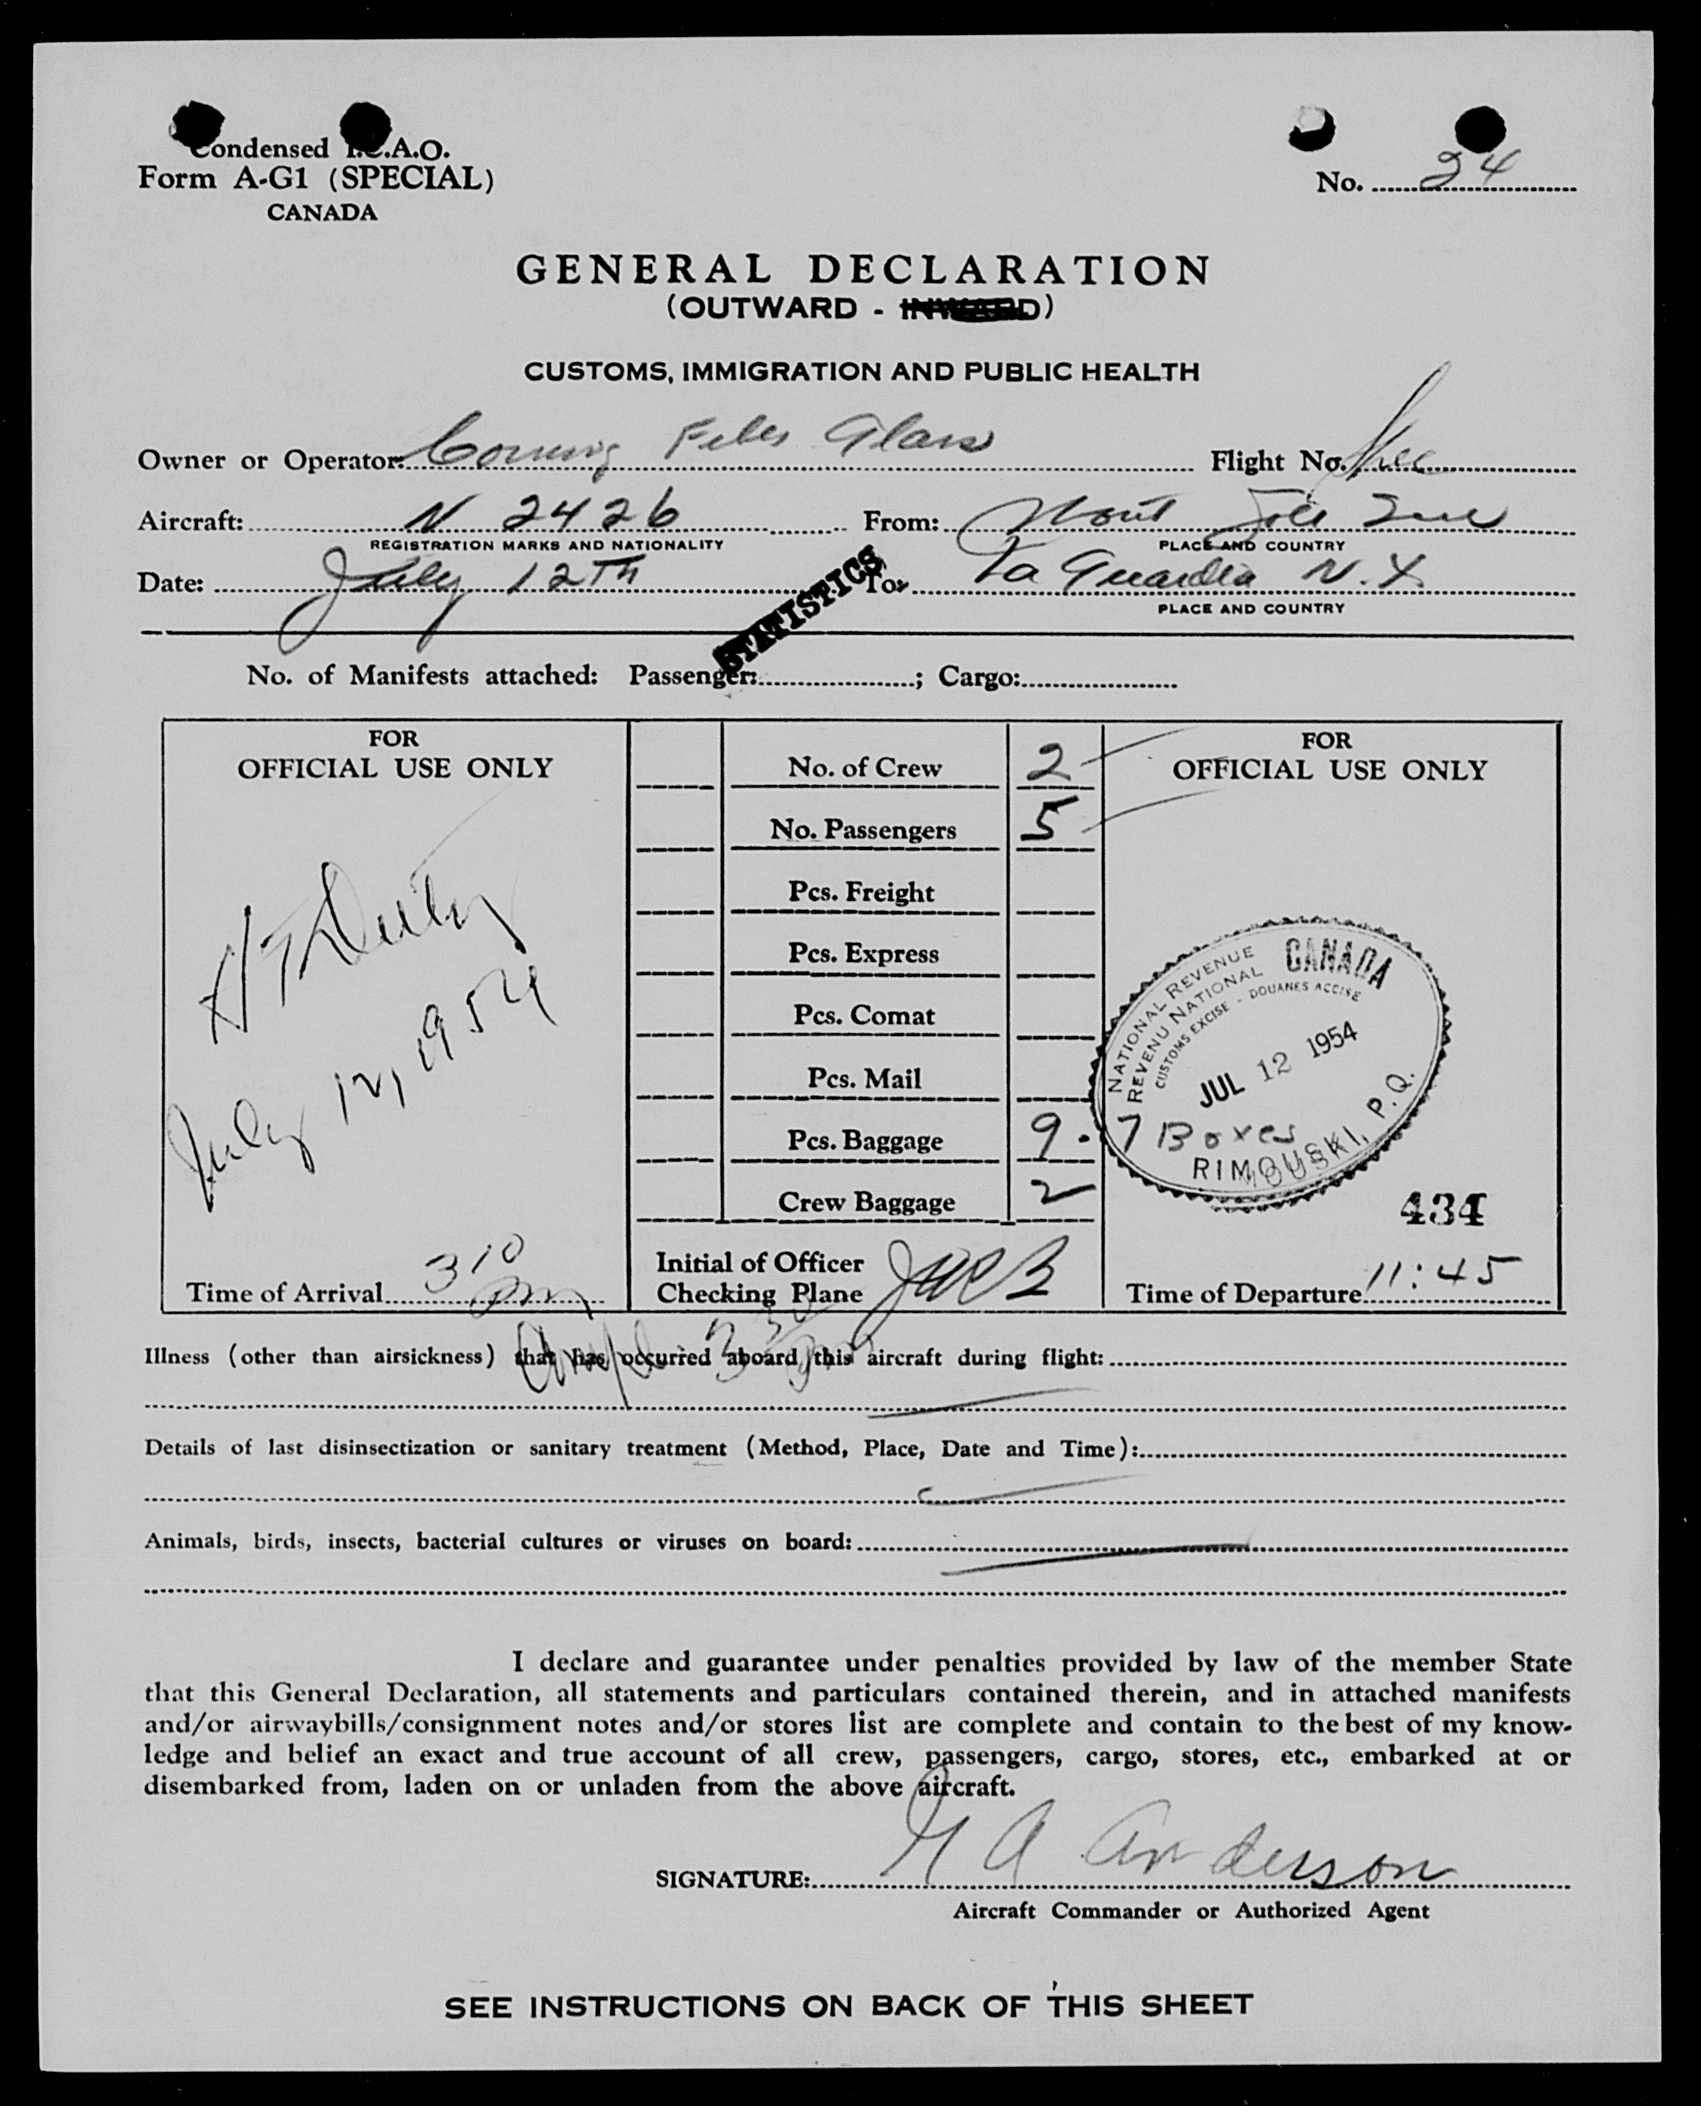 Condensed I.C.A.O.
Form A-G1 (SPECIAL)
CANADA
No. 24
GENERAL DECLARATION
(OUTWARD - INWARD)
CUSTOMS, IMMIGRATION AND PUBLIC HEALTH
Owner or Operator: Corning Fiber Glass Flight No.
Aircraft: N 2426 From: Mont Joli
REGISTRATION MARKS AND NATIONALITY PLACE AND COUNTRY
Date: July 12TH To: La Guardia N.Y.
PLACE AND COUNTRY
STATISTICS
No. of Manifests attached: Passenger: ; Cargo:
FOR
OFFICIAL USE ONLY
July 12, 1954
Time of Arrival 310 pm
No. of Crew 2
No. Passengers 5
Pcs. Freight
Pcs. Express
Pcs. Comat
Pcs. Mail
Pcs. Baggage 9 . 7 Boxes
Crew Baggage 2
Initial of Officer
Checking Plane
FOR
OFFICIAL USE ONLY
CANADA
NATIONAL REVENUE
REVENU NATIONAL
CUSTOMS EXCISE - DOUANES ACCISE
JUL 12 1954
RIMOUSKI, P.Q.
434
Time of Departure 11:45
330 pm
Illness (other than airsickness) that has occurred aboard this aircraft during flight:
Details of last disinsectization or sanitary treatment (Method, Place, Date and Time):
Animals, birds, insects, bacterial cultures or viruses on board:
I declare and guarantee under penalties provided by law of the member State
that this General Declaration, all statements and particulars contained therein, and in attached manifests
and/or airwaybills/consignment notes and/or stores list are complete and contain to the best of my know-
ledge and belief an exact and true account of all crew, passengers, cargo, stores, etc., embarked at or
disembarked from, laden on or unladen from the above aircraft.
SIGNATURE: A Anderson
Aircraft Commander or Authorized Agent
SEE INSTRUCTIONS ON BACK OF THIS SHEET